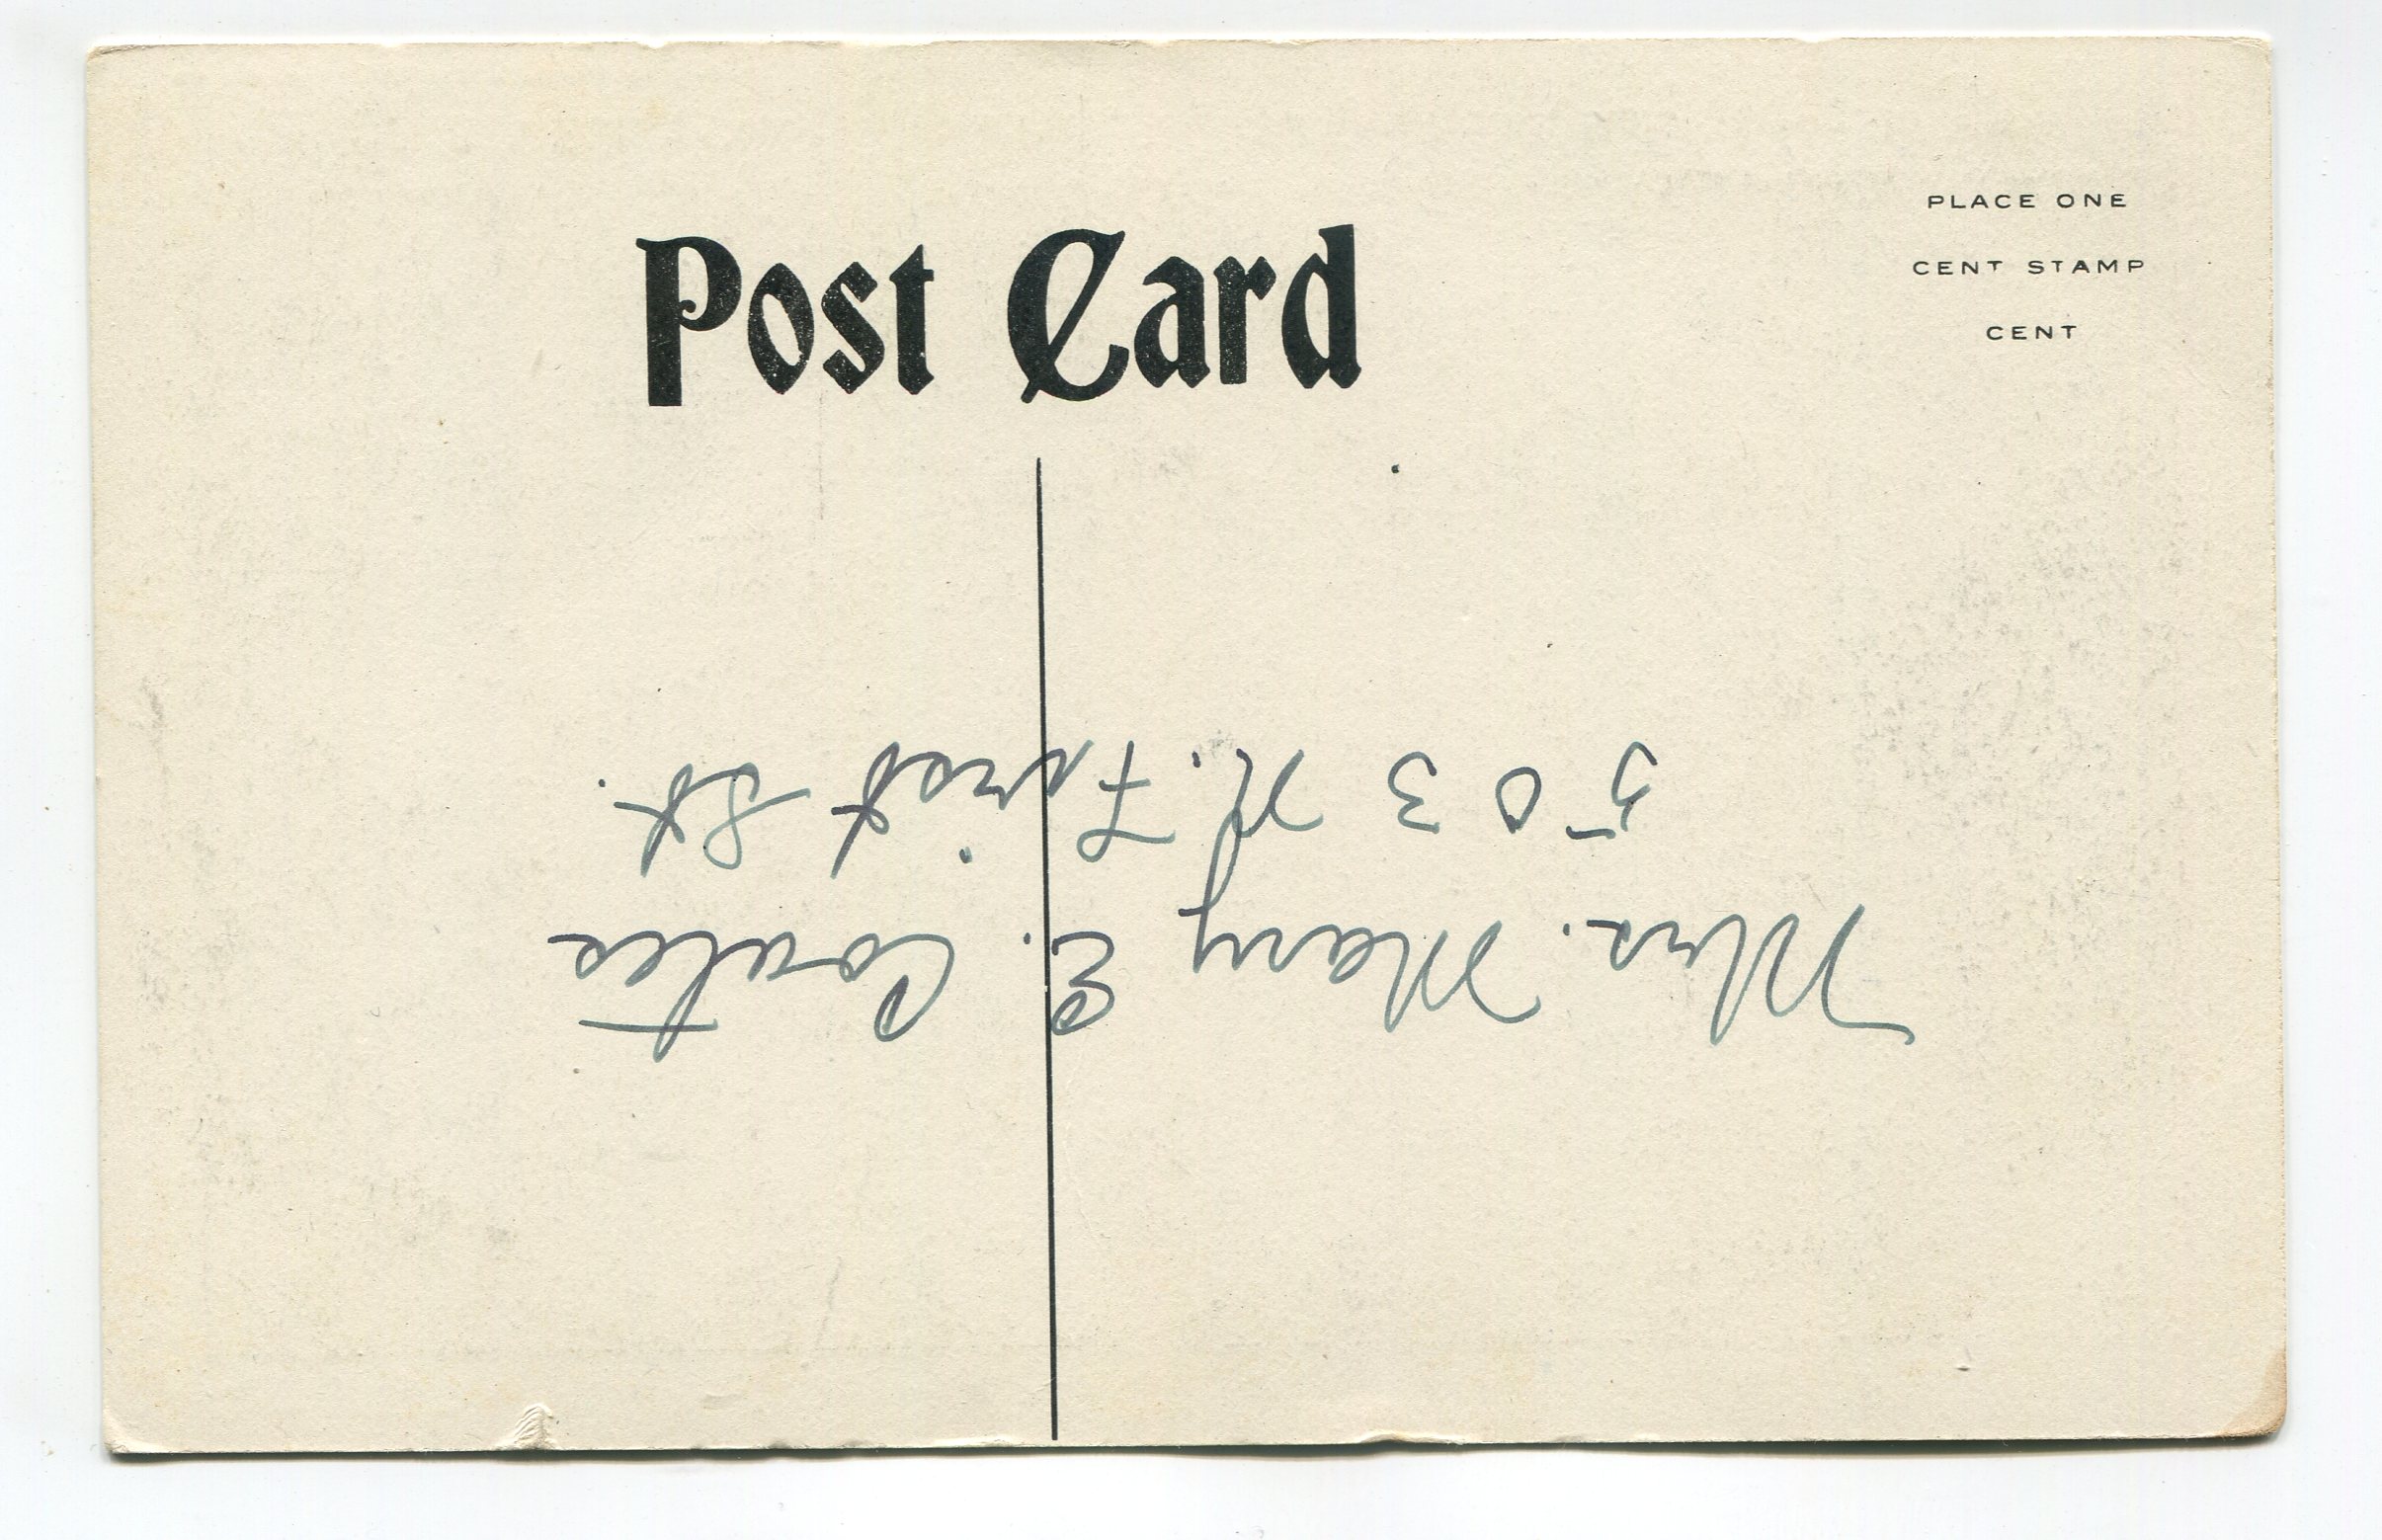 Post Card
PLACE ONE
CENT STAMP
CENT
Mrs. Mary E. Coates
503 N. First St.